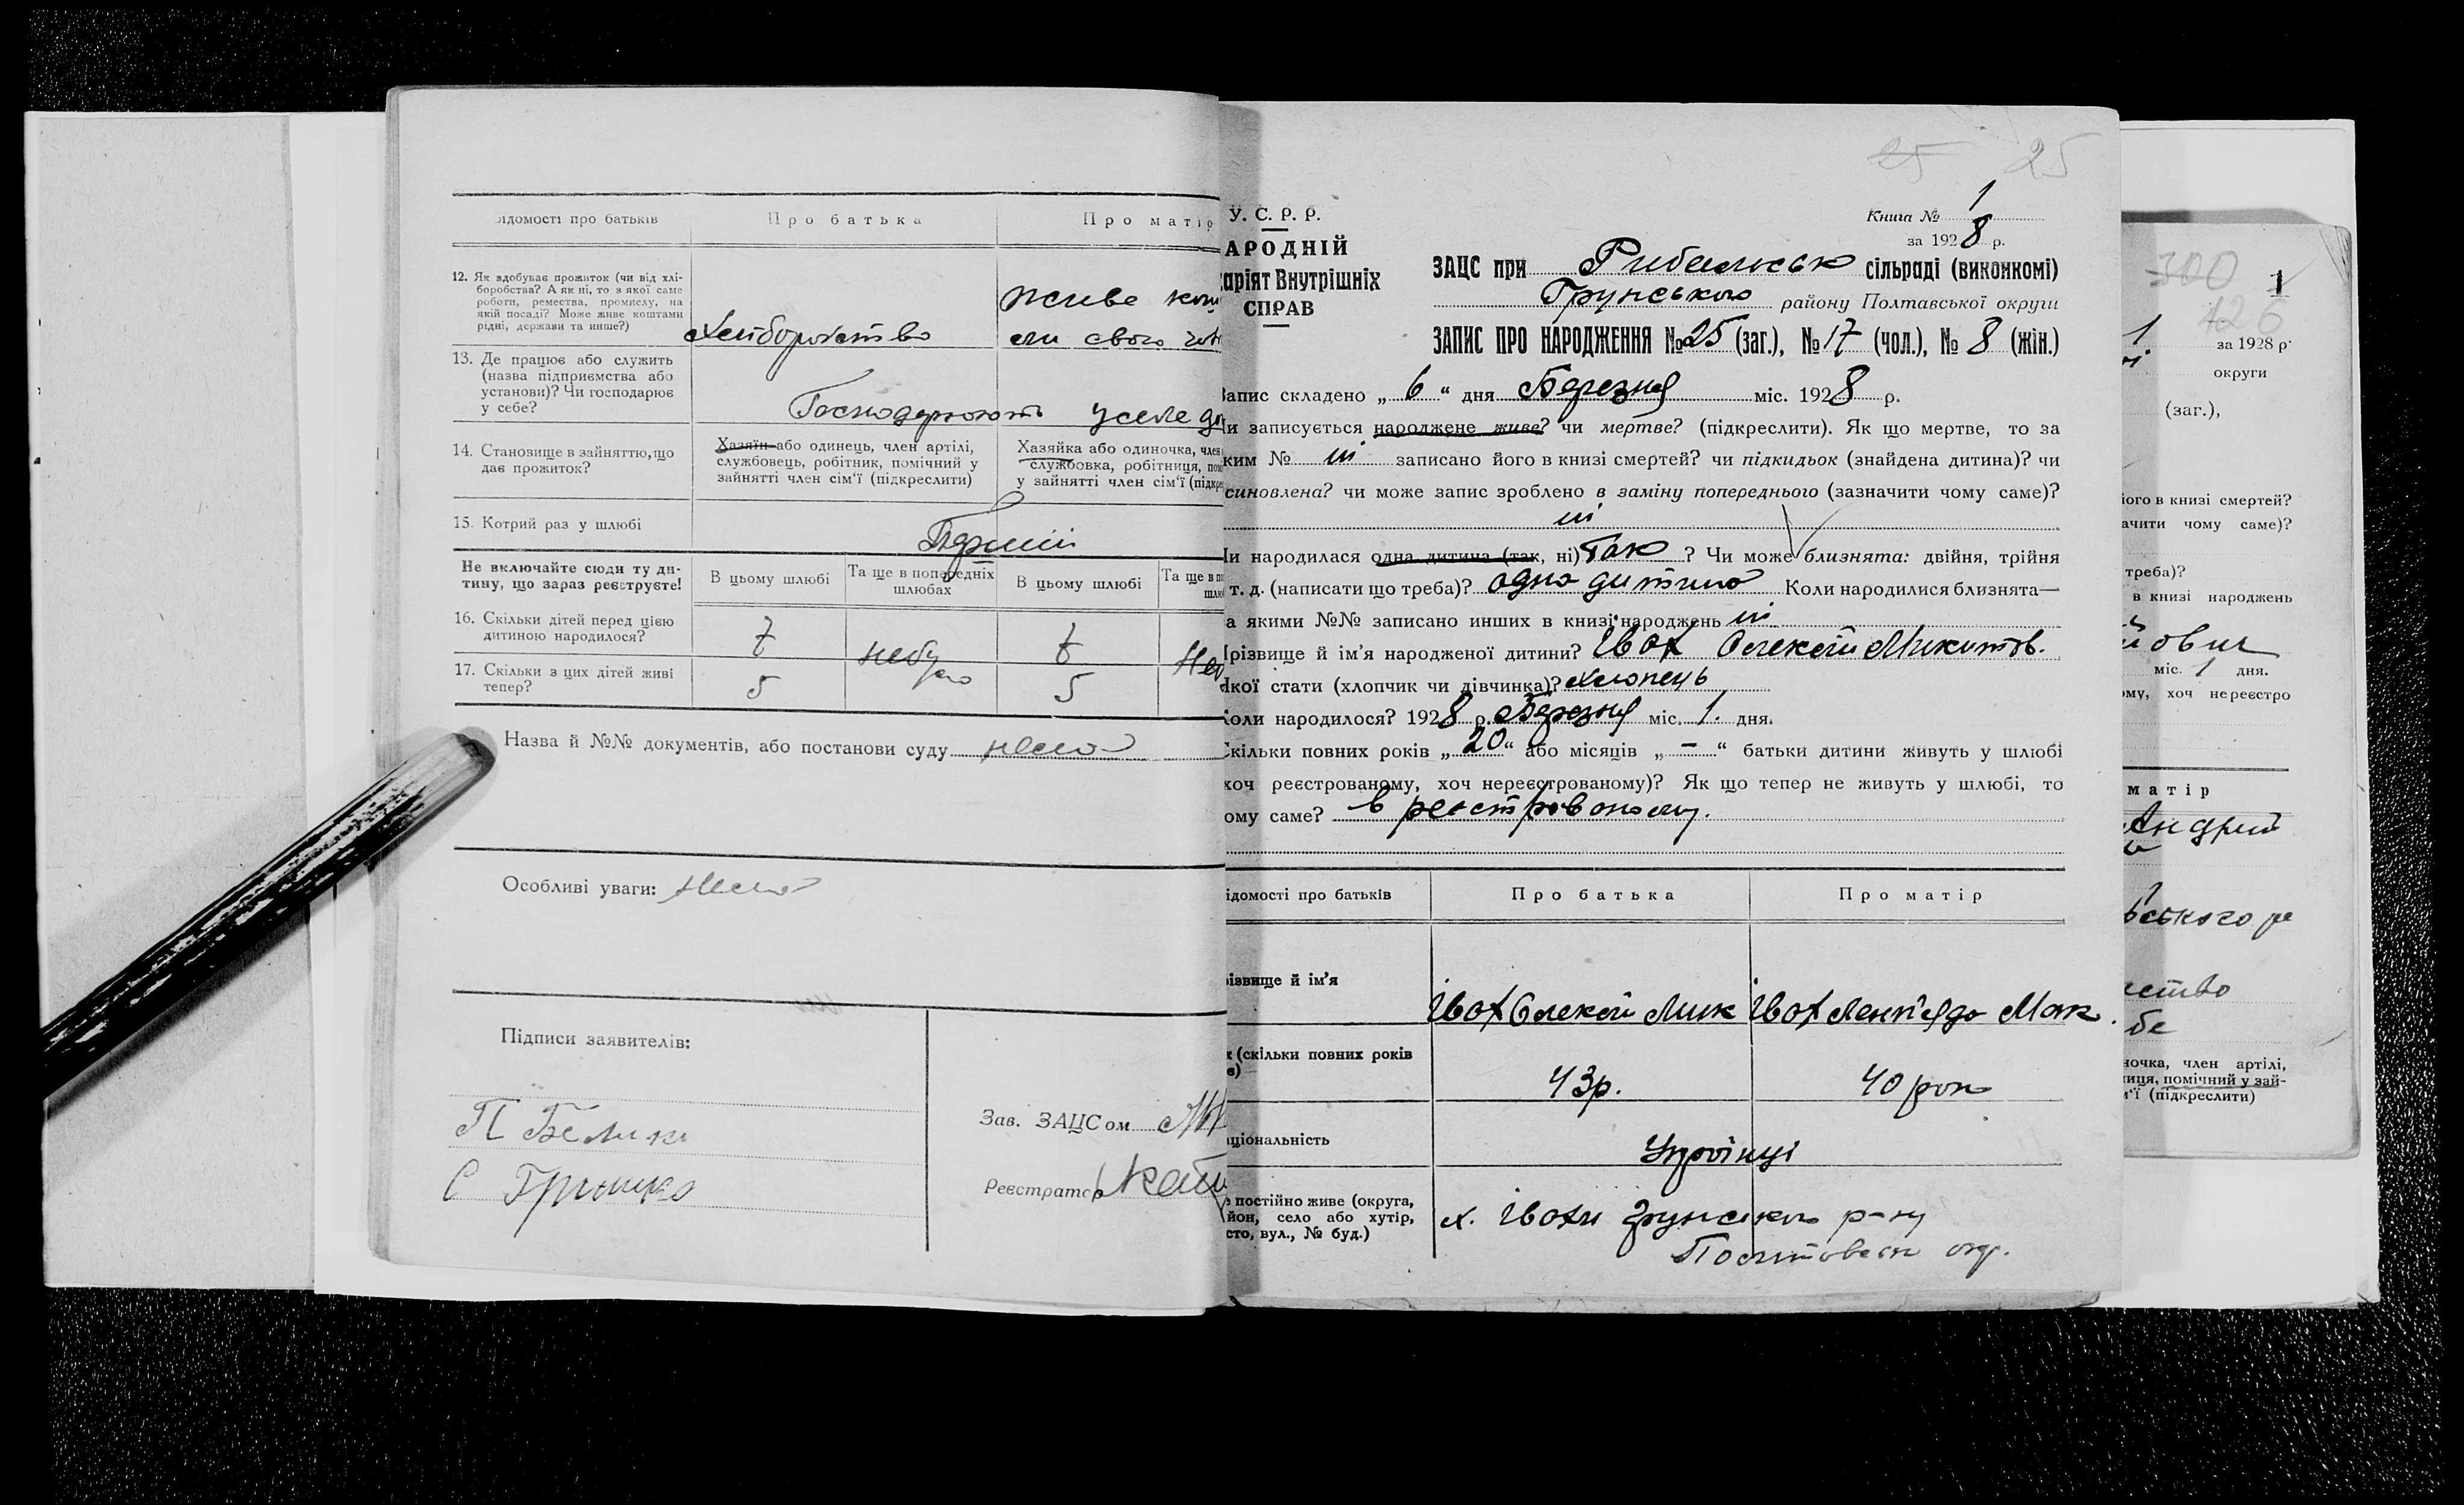 ідомості про батьків
Про батька
Про матір
12. Як здобуває прожиток (чи від хлі-
боробства? А як ні, то з якої саме
роботи, ремества, промислу, на
якій посаді? Може живе коштами
рідні, держави та инше?)
Хліборобство
живе кош
ми свого
13. Де працює або служить
(назва підприємства або
установи)? Чи господарює
у себе?
Господарюють у себе
14. Становище в зайняттю, що
дає прожиток?
Хазяїн або одинець, член артілі,
службовець, робітник, помічний у
зайнятті член сім'ї (підкреслити)
Хазяйка або одиночка, член
службовка, робітниця, пом
у зайнятті член сім'ї (підкре
15. Котрий раз у шлюбі
Перший
Не включайте сюди ту ди-
тину, що зараз реєструєте!
В цьому шлюбі
Та ще в попередніх
шлюбах
В цьому шлюбі
Та ще в п
шлю
16. Скільки дітей перед цією
дитиною народилося?
7
небу
ло
7
Неб
17. Скільки з цих дітей живі
тепер?
5
5
Назва й №№ документів, або постанови суду нема
Особливі уваги: Нема
Підписи заявителів:
П Белик
С Гришко
Зав. ЗАЦСом
Реєстратор
25 25
У. С. Р. Р.
АРОДНІЙ
аріят Внутрішніх
СПРАВ
Книга № 1
за 1928 р.
ЗАЦС при Рибальськ сільраді (виконкомі)
Грунського району Полтавської округи
ЗАПИС ПРО НАРОДЖЕННЯ № 25 (заг.), № 17 (чол.), № 8 (жін.)
Запис складено „ 6 “ дня Березня міс. 1928 р.
Чи записується народжене живе? чи мертве? (підкреслити). Як що мертве, то за
ким № ні записано його в книзі смертей? чи підкидьок (знайдена дитина)? чи
синовлена? чи може запис зроблено в заміну попереднього (зазначити чому саме)?
ні
Чи народилася одна дитина (так, ні) Так ? Чи може близнята: двійня, трійня
т. д. (написати що треба)? одна дитина Коли народилися близнята—
а якими №№ записано инших в книзі народжень ні
Прізвище й ім'я народженої дитини? Івах Олексій Микитов.
Якої стати (хлопчик чи дівчинка)? Хлопець
Коли народилося? 1928 р. Березня міс. 1. дня.
Скільки повних років „ 20 “ або місяців „ – “ батьки дитини живуть у шлюбі
хоч реєстрованому, хоч нереєстрованому)? Як що тепер не живуть у шлюбі, то
ому саме? в реєстрованому.
ідомості про батьків
Про батька
Про матір
ізвище й ім'я
Івах Олексій Мик
Івах Мак.
к (скільки повних років
є)
43р.
40 рок
аціональність
Українці
е постійно живе (округа,
йон, село або хутір,
сто, вул., № буд.)
х. Івахи Грунського р-ну
Полтавськ окр.
300
1
126
1
за 1928 р.
округи
(заг.),
його в книзі смертей?
ачити чому саме)?
треба)?
в книзі народжень
йович
міс. 1 дня.
ому, хоч нереєстро
матір
Андрии
ського ра
ство
бе
ночка, член артілі,
ниця, помічний у зай-
м'ї (підкреслити)